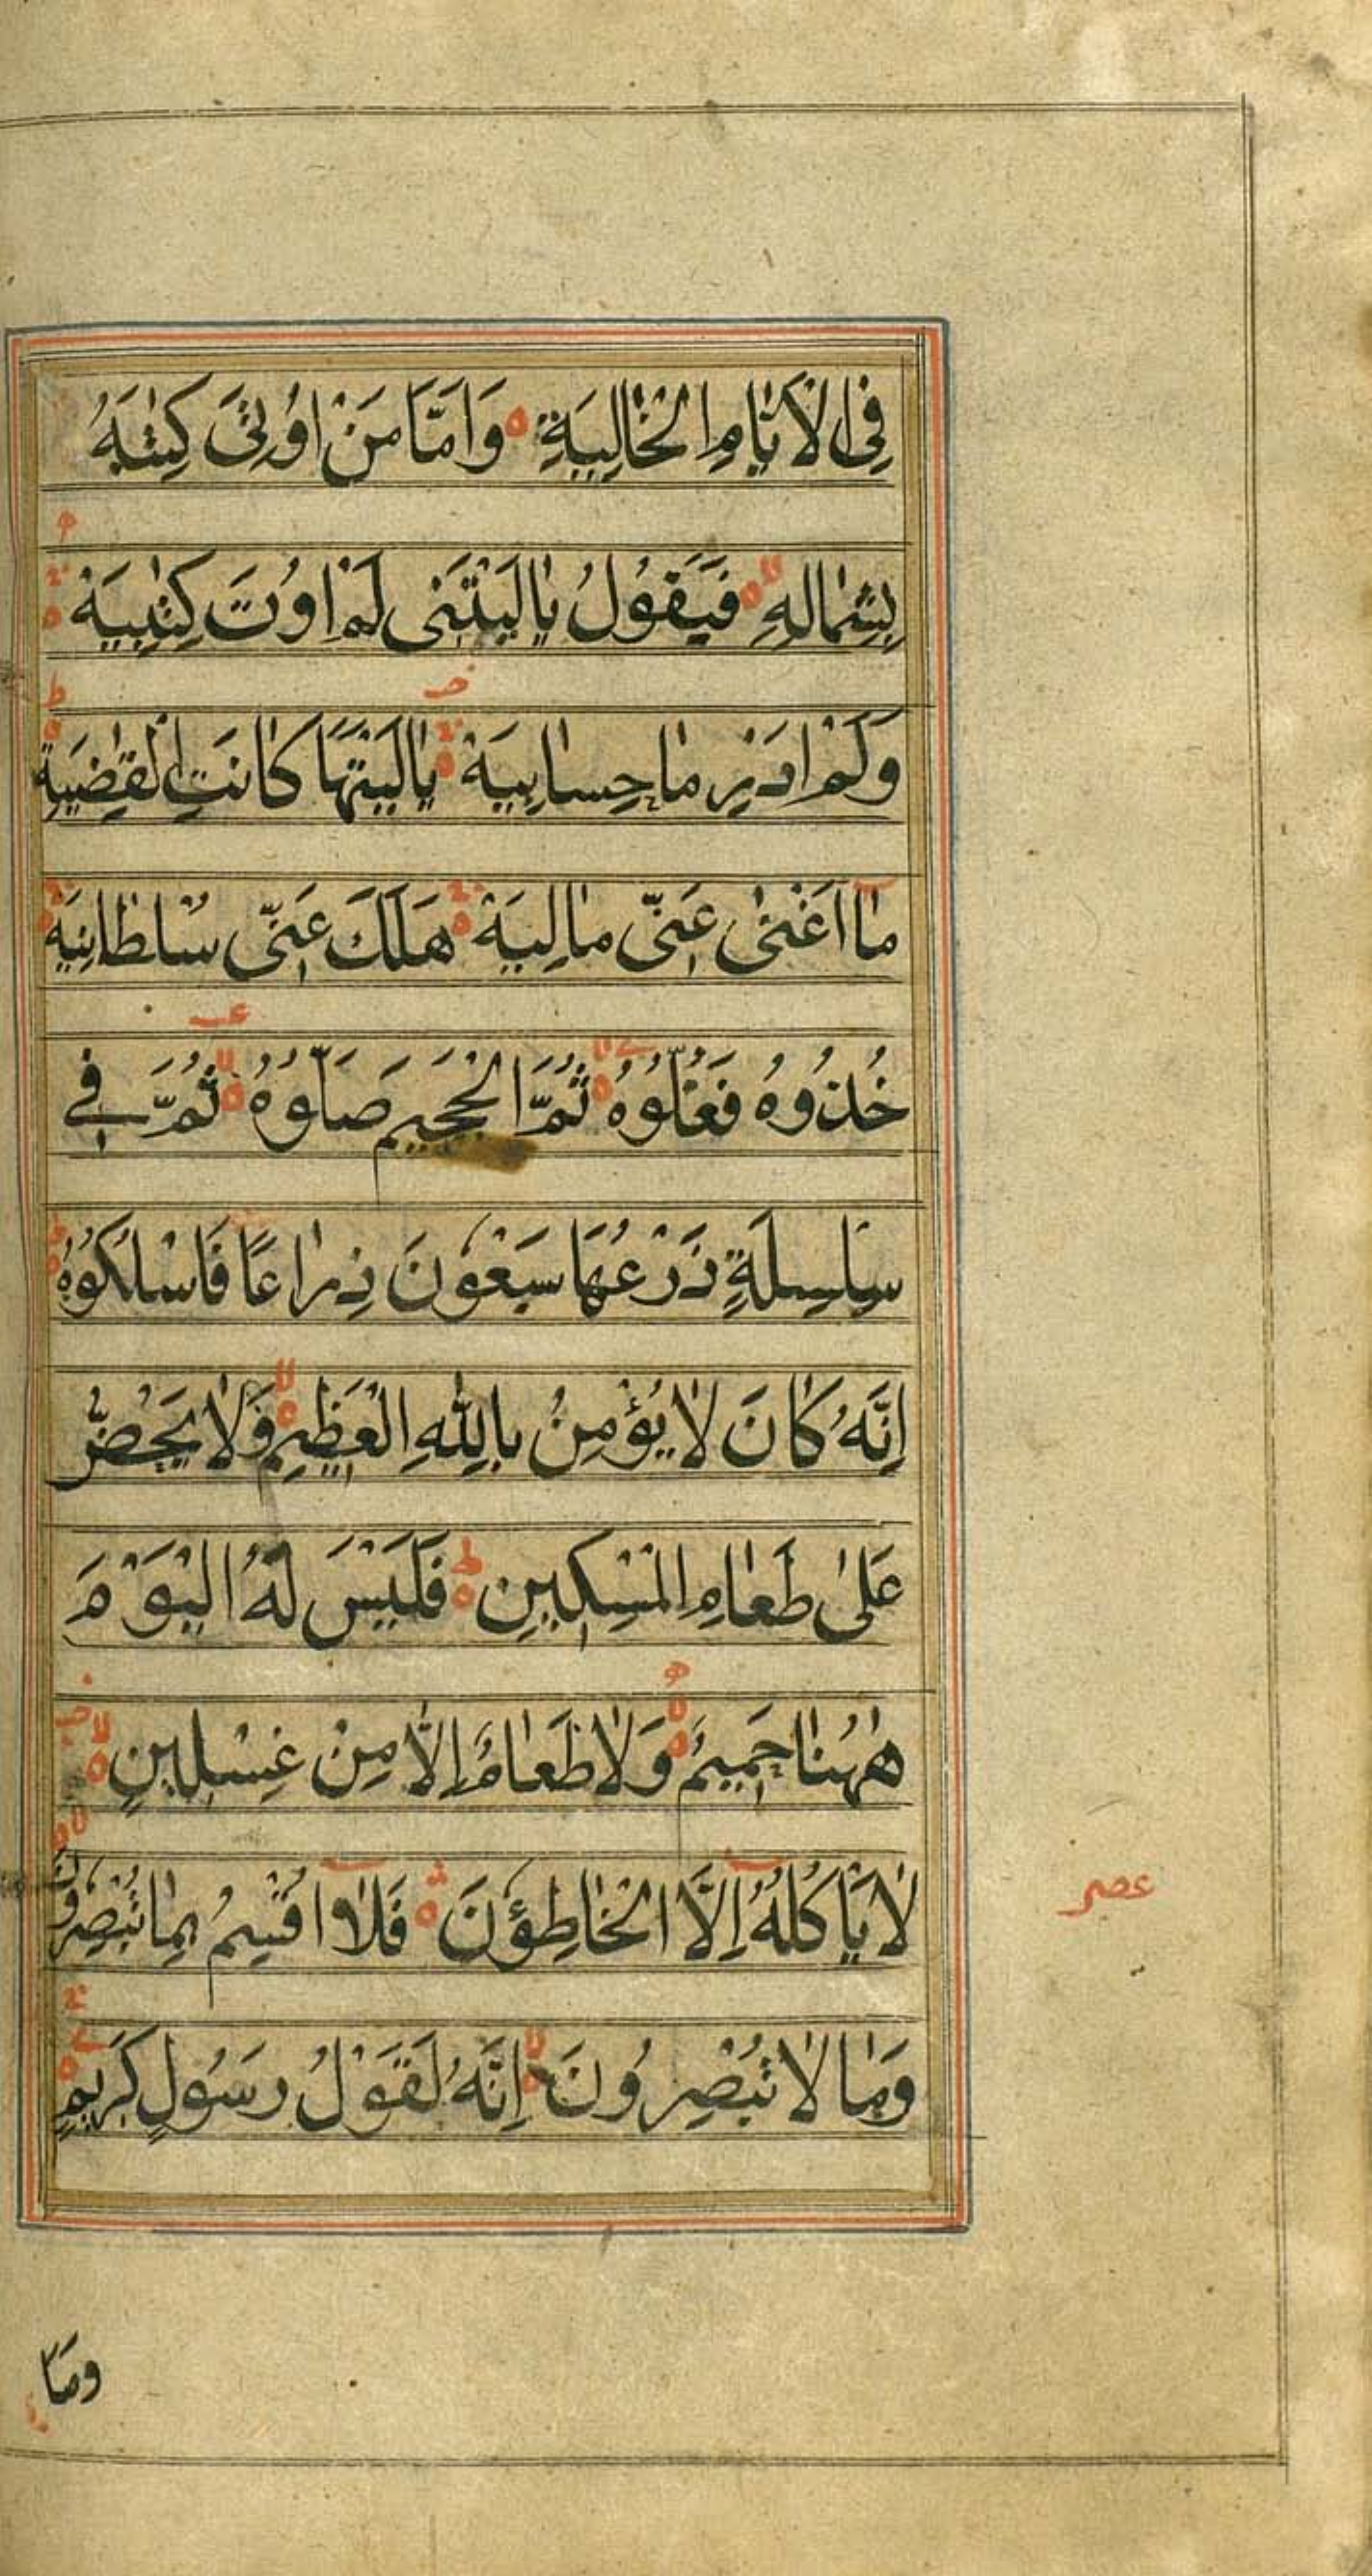 فِى الْاَيَّامِ الْخَالِيَةِ وَاَمَّا مَنْ اُوْتِىَ كِتٰبَهُ
بِشِمَالِهِ فَيَقُوْلُ يَالَيْتَنِى لَمْ اُوْتَ كِتٰبِيَهْ
وَلَمْ اَدْرِ مَا حِسَابِيَهْ يَالَيْتَهَا كَانَتِ الْقَاضِيَةَ
مَا اَغْنٰى عَنِّى مَالِيَهْ هَلَكَ عَنِّى سُلْطَانِيَهْ
خُذُوْهُ فَغُلُّوْهُ ثُمَّ الْجَحِيْمَ صَلُّوْهُ ثُمَّ فِى
سِلْسِلَةٍ ذَرْعُهَا سَبْعُوْنَ ذِرَاعًا فَاسْلُكُوْهُ
اِنَّهُ كَانَ لَا يُؤْمِنُ بِاللّٰهِ الْعَظِيْمِ وَلَا يَحُضُّ
عَلٰى طَعَامِ الْمِسْكِيْنِ فَلَيْسَ لَهُ الْيَوْمَ
هٰهُنَا حَمِيْمٌ وَلَا طَعَامٌ اِلَّا مِنْ غِسْلِيْنٍ
لَا يَاْكُلُهُ اِلَّا الْخَاطِؤُنَ فَلَا اُقْسِمُ بِمَا تُبْصِرُوْنَ
عصر
وَمَا لَا تُبْصِرُوْنَ اِنَّهُ لَقَوْلُ رَسُوْلٍ كَرِيْمٍ
وَمَا